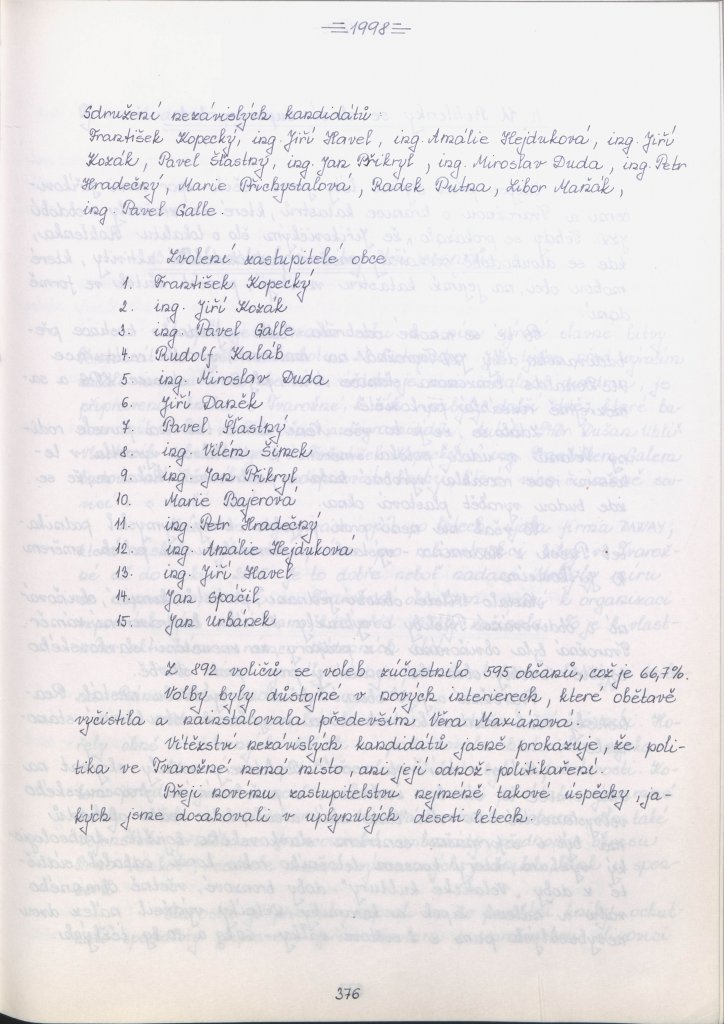 1998
Sdružení nezávislých kandidátů:
František Kopecký, ing. Jiří Havel, ing. Amálie Hejduková, ing. Jiří
Kozák, Pavel Šťastný, ing. Jan Přikryl, ing. Miroslav Duda, ing. Petr
Hradečný, Marie Přichystalová, Radek Putna, Libor Maňák,
ing. Pavel Galle.
Zvolení zastupitelé obce
1. František Kopecký
2. ing. Jiří Kozák
3. ing. Pavel Galle
4. Rudolf Kaláb
5. ing. Miroslav Duda
6. Jiří Daněk
7. Pavel Šťastný
8. ing. Vilém Šimek
9. ing. Jan Přikryl
10. Marie Bajerová
11. ing. Petr Hradečný
12. ing. Amálie Hejduková
13. ing. Jiří Havel
14. Jan Spáčil
15. Jan Urbánek
Z 892 voličů se voleb zúčastnilo 595 občanů, což je 66,7%.
Volby byly důstojné v nových interierech, které obětavě
vyčistila a nainstalovala především Věra Maxiánová.
Vítězství nezávislých kandidátů jasně prokazuje, že poli-
tika ve Tvarožné nemá místo, ani její odnož - politikaření.
Přeji novému zastupitelstvu nejméně takové úspěchy, ja-
kých jsme dosahovali v uplynulých deseti létech.
376